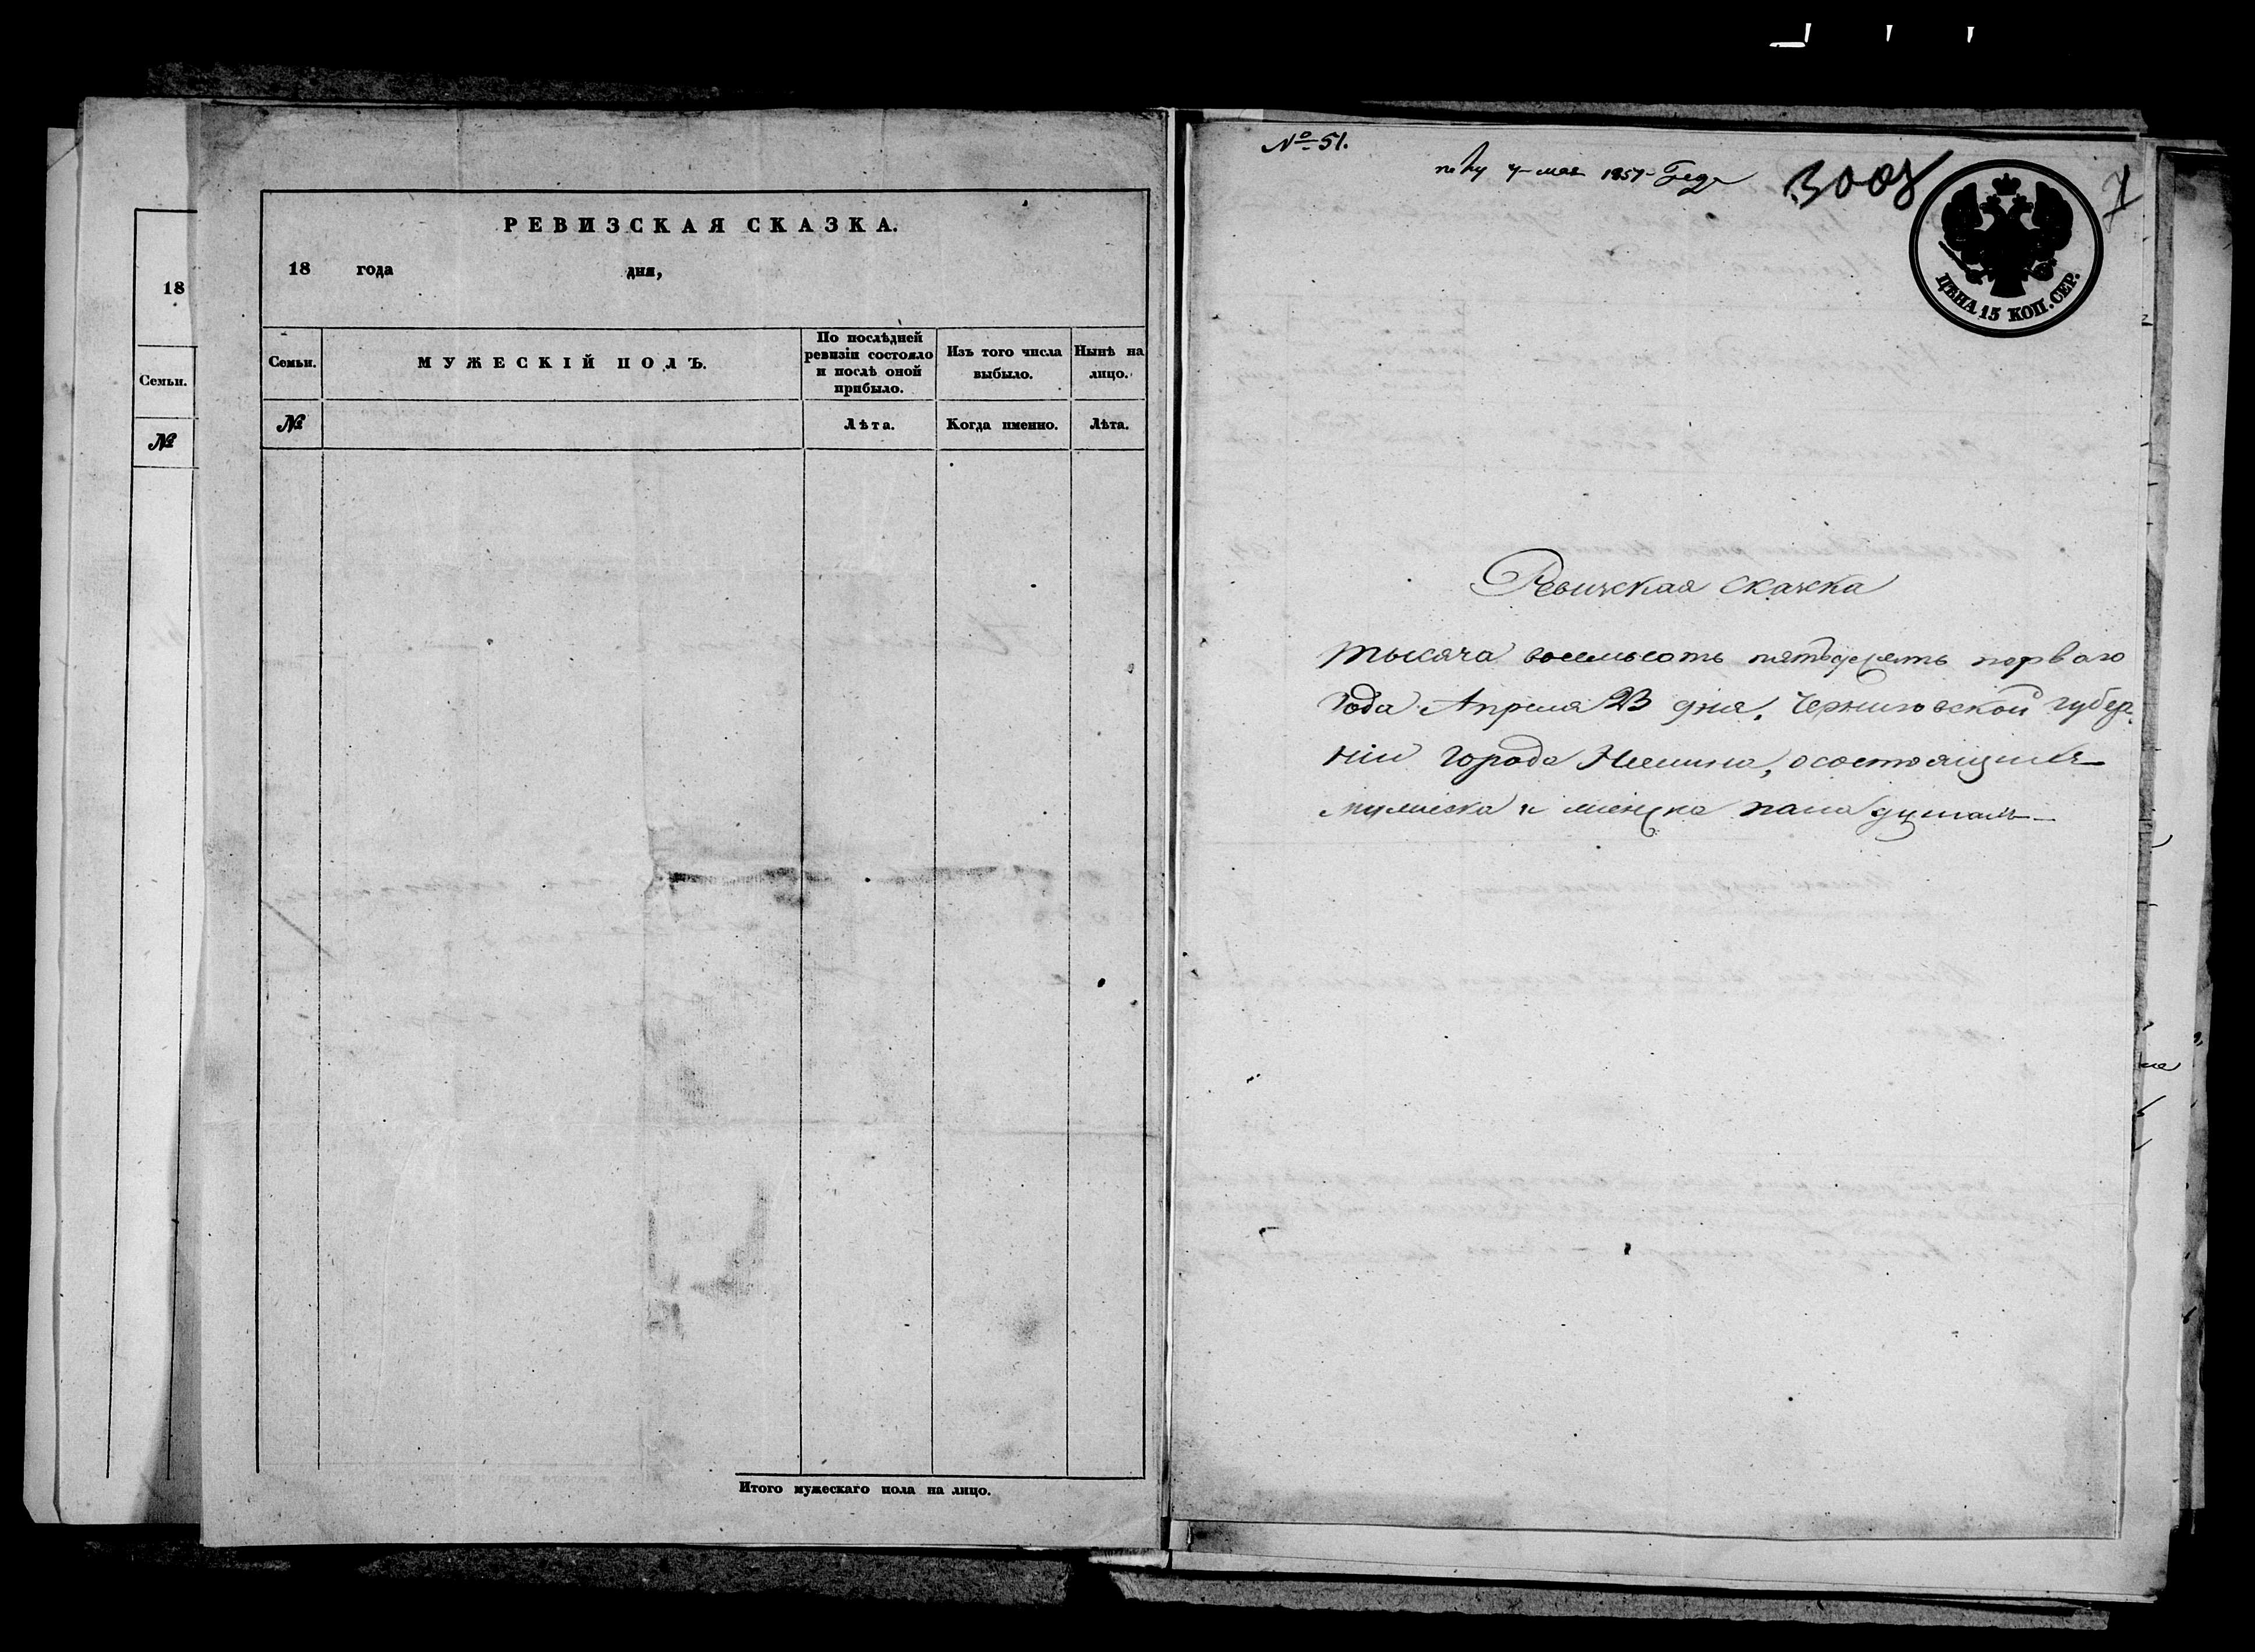 18
Семьи.
№
РЕВИЗСКАЯ СКАЗКА.
18 года дня,
Семьи.
МУЖЕСКІЙ ПОЛЪ.
По послѣдней ревизіи состояло и послѣ оной прибыло.
Изъ того числа выбыло.
Нынѣ на лицо.
№
Лѣта.
Когда именно.
Лѣта.
Итого мужескаго пола на лицо.
№ 51.
мая 1851 Года
3008
7
ЦѢНА 15 КОП. СЕР.
Ревизская сказка
тысяча восемьсотъ пятьдесятъ первого
Года Апреля 23 дня, Черниговской губер
ніи Города Нежина, о состоящихъ
мужеска и женска пола душахъ